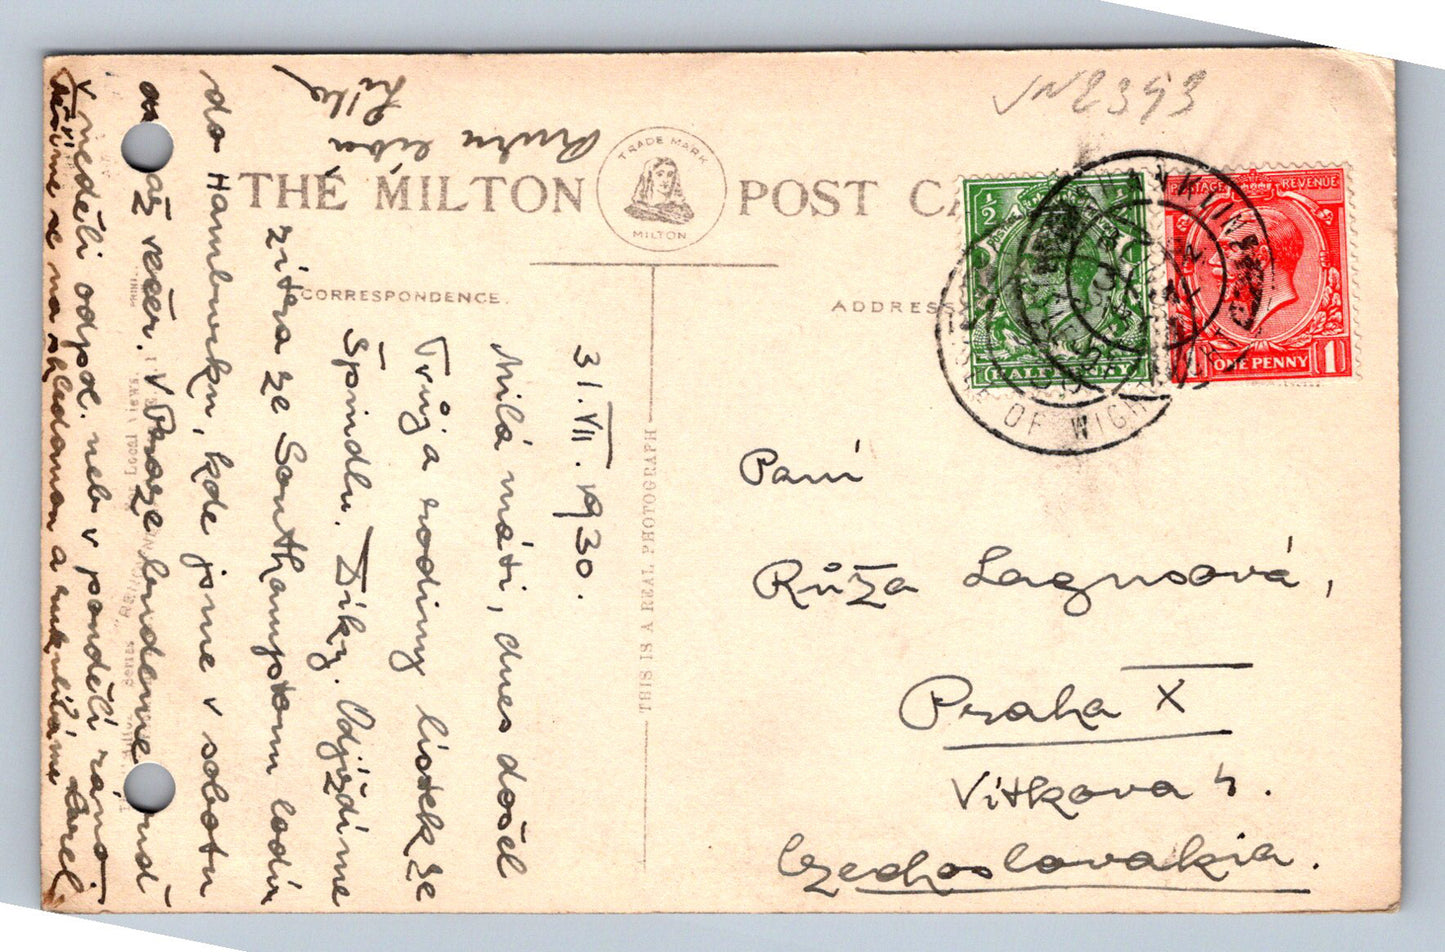 VN2393
THE MILTON POST CA
TRADE MARK
MILTON
CORRESPONDENCE.
ADDRESS
THIS IS A REAL PHOTOGRAPH
31.VII.1930.
Milá máti, dnes došel
Tvůj a rodiny lístek ze
Špindlu. Díky. Odjíždíme
zítra ze Southamptonu lodí
do Hamburku, kde jsme v sobotu
až večer. V Praze budeme buď
v neděli odpol. neb v pondělí ráno.
Těšíme se na shledanou a Karel
Ruku líbá
Paní
Růža Lagusová,
Praha X
Vítkova 4.
Czechoslovakia.
1/2
HALFPENNY
POSTAGE REVENUE
1 ONE PENNY 1
ISLE OF WIGHT
Local Views.
Series